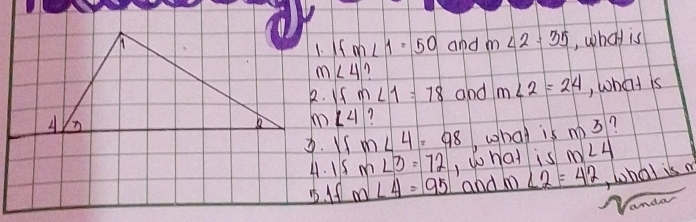 1. If m∠1 = 50 and m∠2 = 35, what is
m∠4?
2. If m∠1 = 78 and m∠2 = 24, what is
m∠4?
3. If m∠4 = 98, what is m 3?
4. If m∠3 = 72, what is m∠4
5. If m∠4 = 95 and m∠2 = 42, what is m
1
4 3 2
Vanda